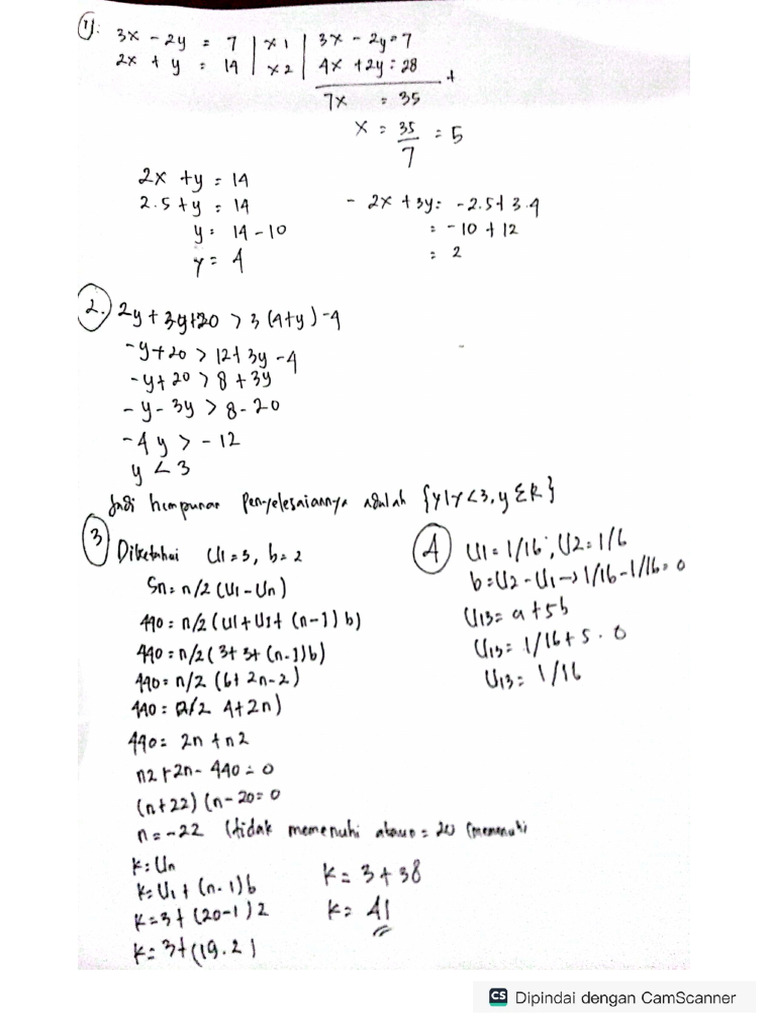 1). 3x - 2y = 7 | x 1 | 3x - 2y = 7
2x + y = 14 | x 2 | 4x + 2y = 28 +
7x = 35
x = 35/7 = 5
2x + y = 14
2.5 + y = 14
y = 14 - 10
y = 4
- 2x + 3y = -2.5 + 3.4
= -10 + 12
= 2
2. 2y + 3y + 20 > 3 (4+y) - 4
-y + 20 > 12 + 3y - 4
-y + 20 > 8 + 3y
-y - 3y > 8 - 20
-4y > -12
y < 3
Jadi himpunan Penyelesaiannya adalah {y|y < 3, y ΣR}
3 Diketahui U1 = 3, b = 2
Sn = n/2 (U1 - Un)
440 = n/2 (U1 + U1 + (n-1) b)
440 = n/2 (3 + 3 + (n-1)b)
440 = n/2 (6 + 2n - 2)
440 = n/2 4 + 2n)
440 = 2n + n2
n2 + 2n - 440 = 0
(n+22) (n-20 = 0
n = -22 (tidak memenuhi atau n = 20 (memenuhi
k = Un
k = U1 + (n-1)b
k = 3 + (20-1) 2
k = 3 + (19.2)
k = 3 + 38
k = 41
4 U1 = 1/16, U2 = 1/6
b = U2 - U1 → 1/16 - 1/16 = 0
U13 = a + 5b
U13 = 1/16 + 5 . 0
U13 = 1/16
CS Dipindai dengan CamScanner